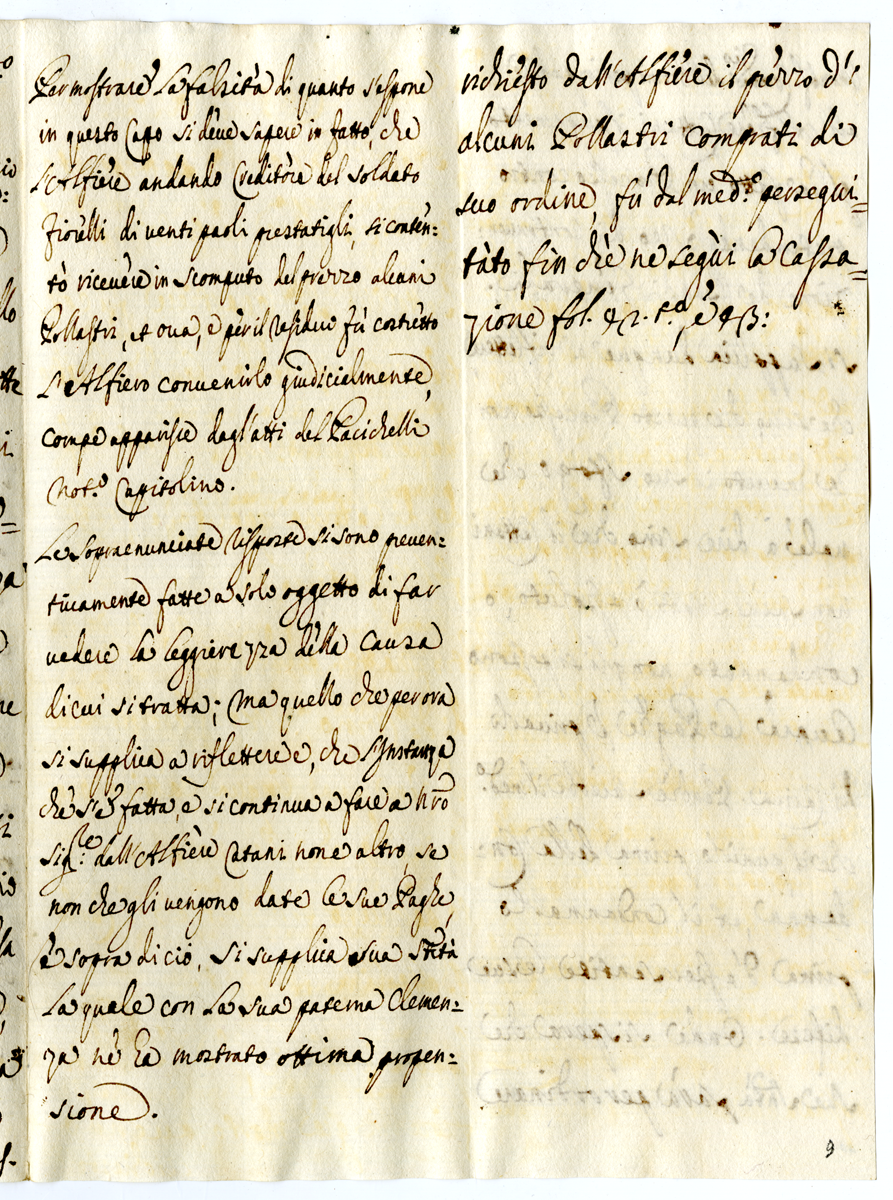 Per mostrare la falsità di quanto s'espone
in questo Capo si deve sapere in fatto, che
l'Alfiere andando Creditore del soldato
Fiorelli di venti paoli prestatigli, si conten:
tò ricevere in scomputo del prezzo alcuni
Pollastri, et ova, e per il residuo fù costretto
L'Alfiero convenirlo giudicialmente,
come apparisce dagl'atti del Pacichelli
Not.º Capitolino.
Le sopraenunciate risposte si sono preven:
tivamente fatte a solo oggetto di far
vedere la leggierezza della causa
di cui si tratta; Ma quello che per ora
si supplica a riflettere è, che l'Instanza
che s'è fatta, e si continua a fare a Nrõ
Sig.re dall'Alfiere Catani non è altro, se
non che gli vengono date le sue Paghe,
e sopra di ciò, si supplica sua Stità
La quale con la sua paterna Clemen:
za nè ha mostrato ottima propen:
sione.
richiesto dall'Alfiere il prezzo d'
alcuni Pollastri comprati di
suo ordine, fù dal med.º persegui=
tàto fin che ne seguì la Cassa=
zione fol. 42. t.º, e 43:
9